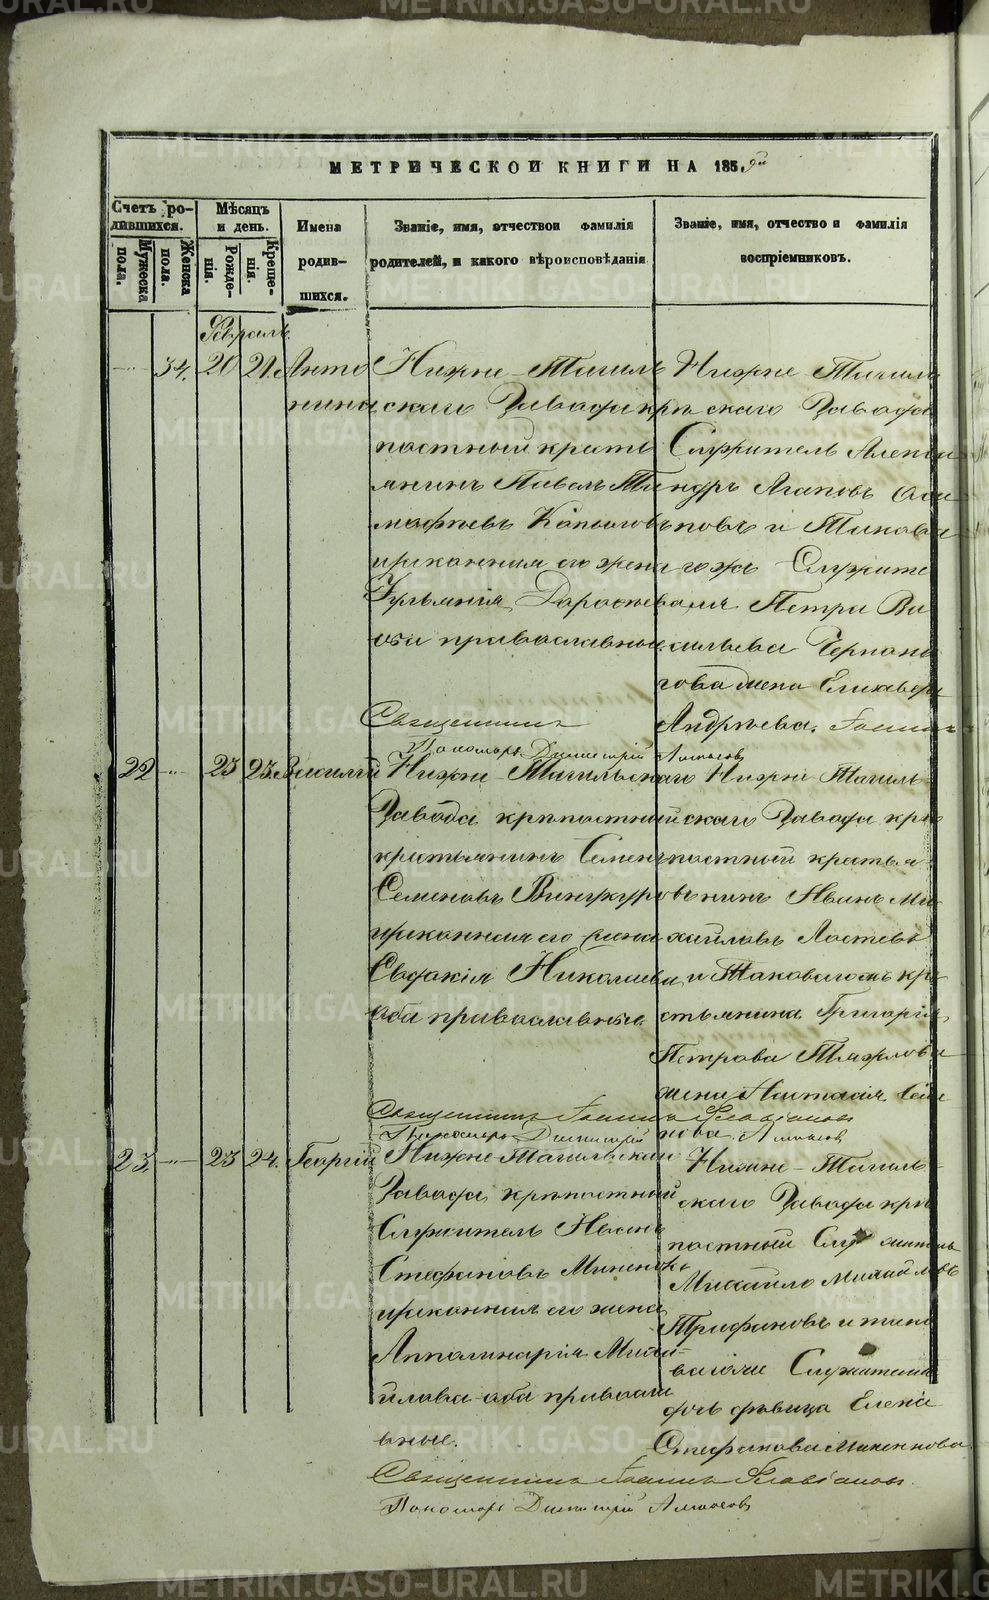 МЕТРИЧЕСКОЙ КНИГИ НА 1859й
Счетъ ро-
дившихся.
Мужеска
пола.
Женска
пола.
Мѣсяцъ
и день.
Рожде-
нія.
Креще-
нія.
Имена
родив-
шихся.
Званіе, имя, отчествои фамилія
родителей, и какого вѣроисповѣданія
Званіе, имя, отчество и фамилія
воспріемниковъ.
Февраль.
34. 20 21. Анто
нина
Нижне-Тагиль
скаго Завода крѣ
постный кресть
янинъ Павелъ Ти
мофѣевъ Копыловъ
и законная его жена
Дорофѣева
оба православные.
Нижне Тагиль
скаго Завода
Служитель Алекса
ндръ Агаповъ
повъ и Таковаго
гожъ Служите
ля Петра Ва
сильева Черпано
гова жена Елизавета
Андрѣева.
Священникъ Іоаннъ
Пономарь Димитрій Алмазовъ
22 23 23. Василій
Нижне-Тагильскаго
Завода крѣпостный
крестьянинъ Семенъ
Семеновъ Винокуровъ
и законная его жена
Евдокія Николаева
оба православные.
Нижне Тагиль
скаго Завода крѣ
постной кресть я
нинъ Иванъ Ми
хайловъ Лаптевъ
и Таковагожъ кре
стьянина Григорія
Петрова Тяжлова
жена Настасія Семе
нова.
Священникъ Іоаннъ Флавіановъ
Пономарь Димитрій Алмазовъ
23. 23 24. Георгій
Нижне-Тагильскаго
Завода крѣпостный
Служитель Иванъ
Стефановъ Микенинъ
и законная его жена
Апполинарія Миха
йлова оба правосла
вные.
Нижне-Тагиль
скаго Завода крѣ
постный Служитель
Михайло Михайловъ
Трифановъ и тако
вагоже Служителя
дочь дѣвица Елена
Стефанова Микеннова.
Священникъ Іоаннъ Флавіановъ.
Пономарь Димитрій Алмазовъ
METRIKI.GASO-URAL.RU